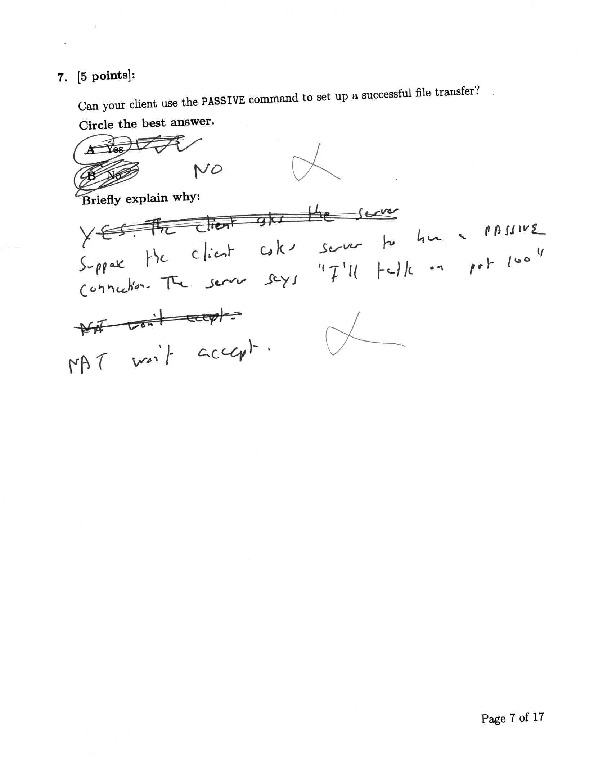 7. [5 points]:
Can your client use the PASSIVE command to set up a successful file transfer?
Circle the best answer.
A Yes
B No
NO
Briefly explain why:
YES. The client asks the server
Suppose the client asks server to have a PASSIVE
connection. The server says "I'll talk on port 100"
NAT won't accept.
NAT won't accept.
Page 7 of 17